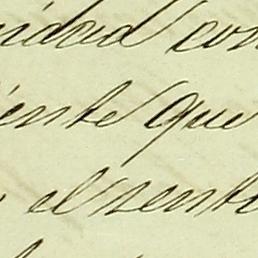 nidad con
iente que
el senti